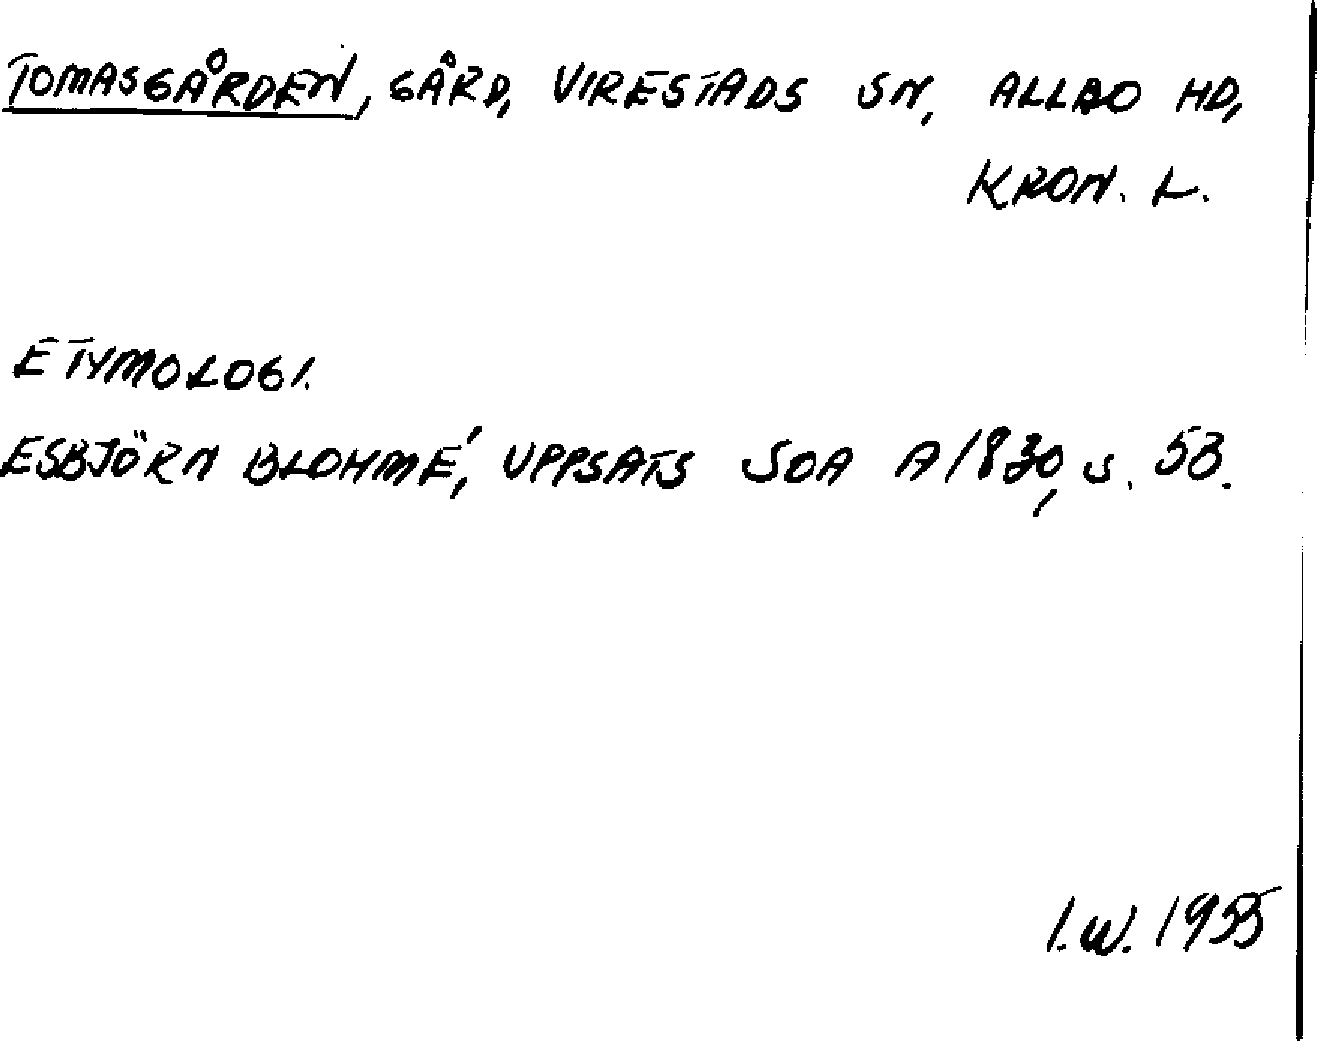 TOMASGÅRDEN, GÅRD, VIRESTADS SN, ALLBO HD,
KRON. L.
ETYMOLOGI.
ESBJÖRN BLOHMÉ, UPPSATS SOA A/830, s. 53.
I.W. 1955